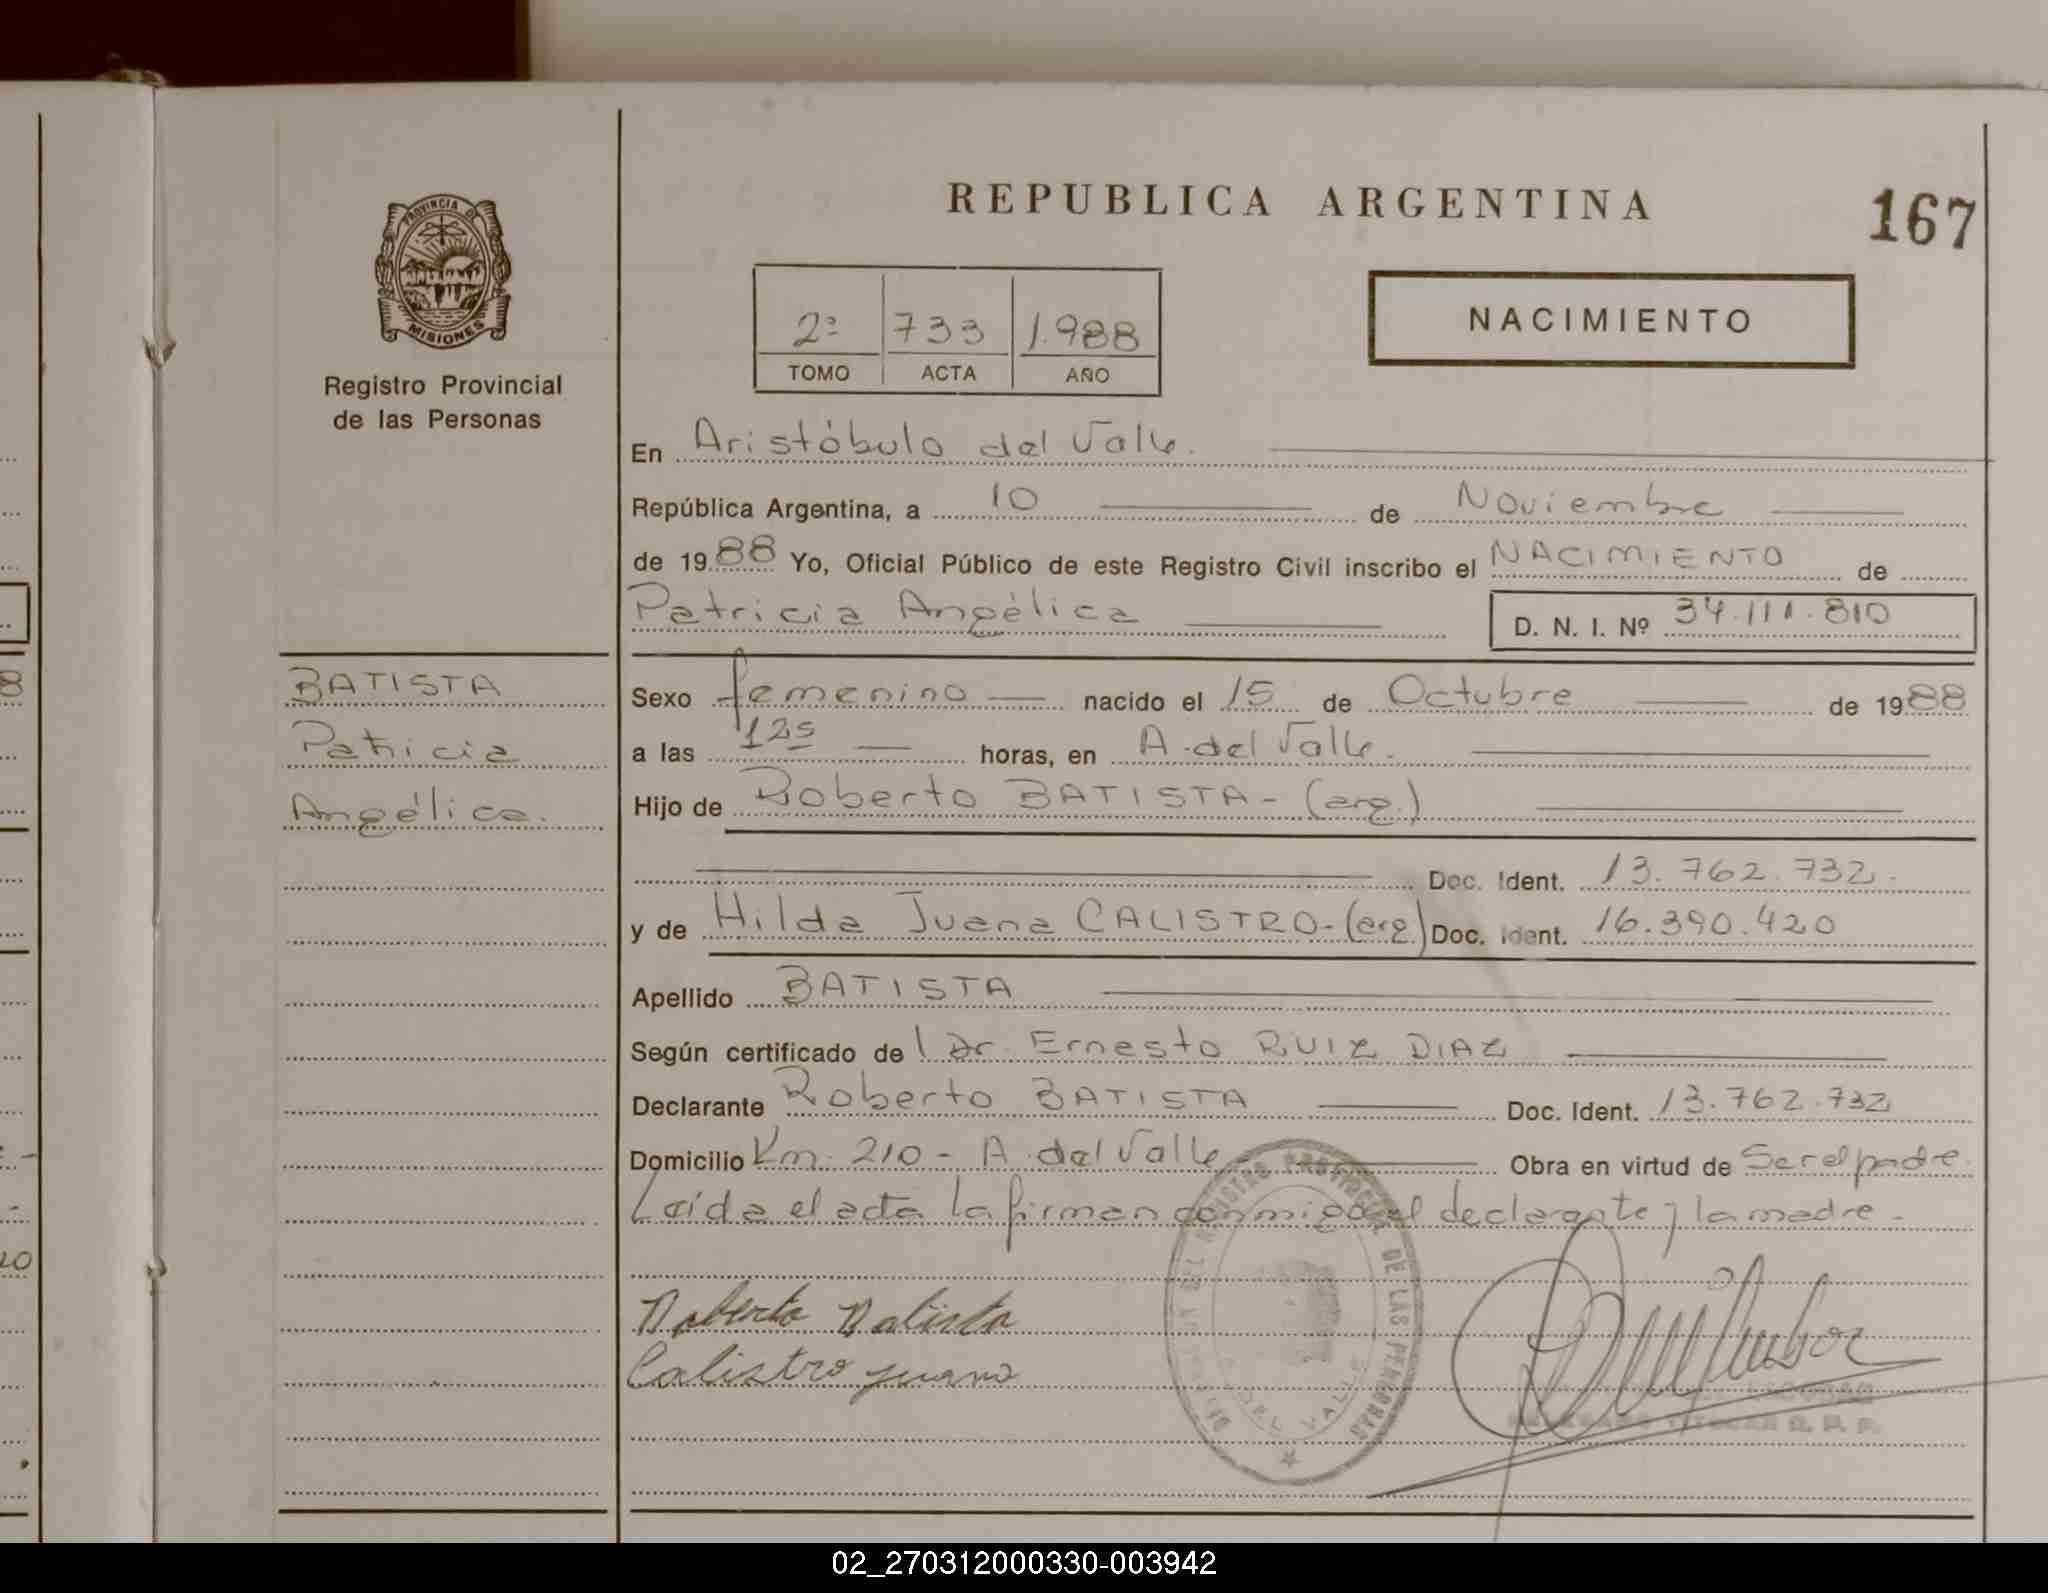 REPUBLICA ARGENTINA
167
PROVINCIA DE
MISIONES
Registro Provincial
de las Personas
2º 733 1.988
TOMO ACTA AÑO
NACIMIENTO
En Aristóbulo del Valle.
República Argentina, a 10 de Noviembre
de 1988 Yo, Oficial Público de este Registro Civil inscribo el NACIMIENTO de
Patricia Angélica
D. N. I. Nº 34.111.810
BATISTA
Patricia
Angélica.
Sexo femenino nacido el 15 de Octubre de 1988
a las 12s horas, en A. del Valle.
Hijo de Roberto BATISTA - (arg.)
Doc. Ident. 13.762.732.
y de Hilda Juana CALISTRO - (arg.) Doc. Ident. 16.390.420
Apellido BATISTA
Según certificado del Dr. Ernesto RUIZ DIAZ
Declarante Roberto BATISTA Doc. Ident. 13.762.732
Domicilio Km. 210 - A. del Valle Obra en virtud de Ser el padre.
Leída el acta la firman conmigo el declarante y la madre -
Roberto Batista
Calistro Juana
DEL REGISTRO PROVINCIAL DE LAS PERSONAS
DEL VALLE
8
20
02_270312000330-003942